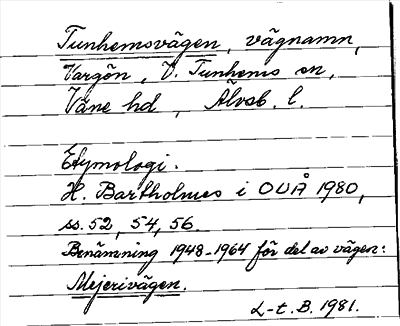 Tunhemsvägen, vägnamn,
Vargön, V. Tunhems sn,
Väne hd, Älvsb. l.
Etymologi.
H. Bartholmes i OUÅ 1980,
ss. 52, 54, 56.
Benämning 1948-1964 för del av vägen:
Mejerivägen.
L-t. B. 1981.